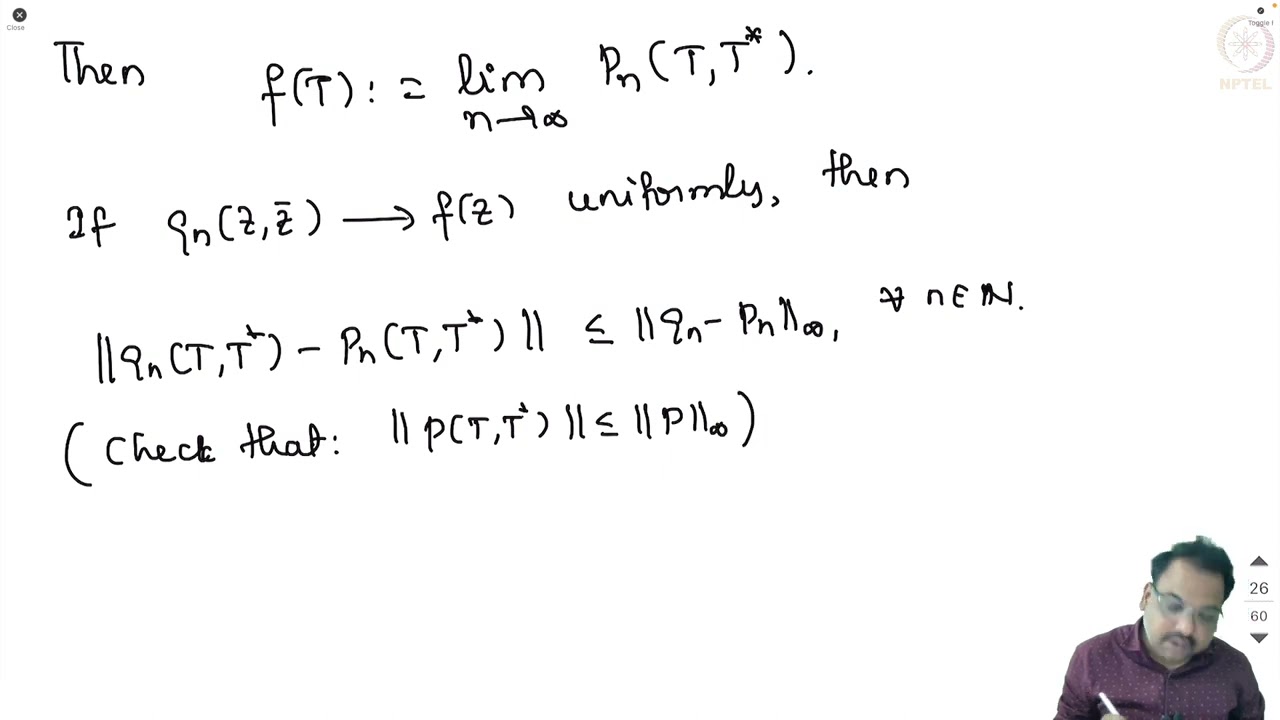 Close
Toggle f
NPTEL
Then f(T) := lim n→∞ Pn(T,T*).
If qn(z,z̄) ⟶ f(z) uniformly, then
||qn(T,T*) − Pn(T,T*)|| ≤ ||qn − Pn||∞, ∀ n∈ℕ.
(Check that: ||P(T,T*)|| ≤ ||P||∞)
26
60